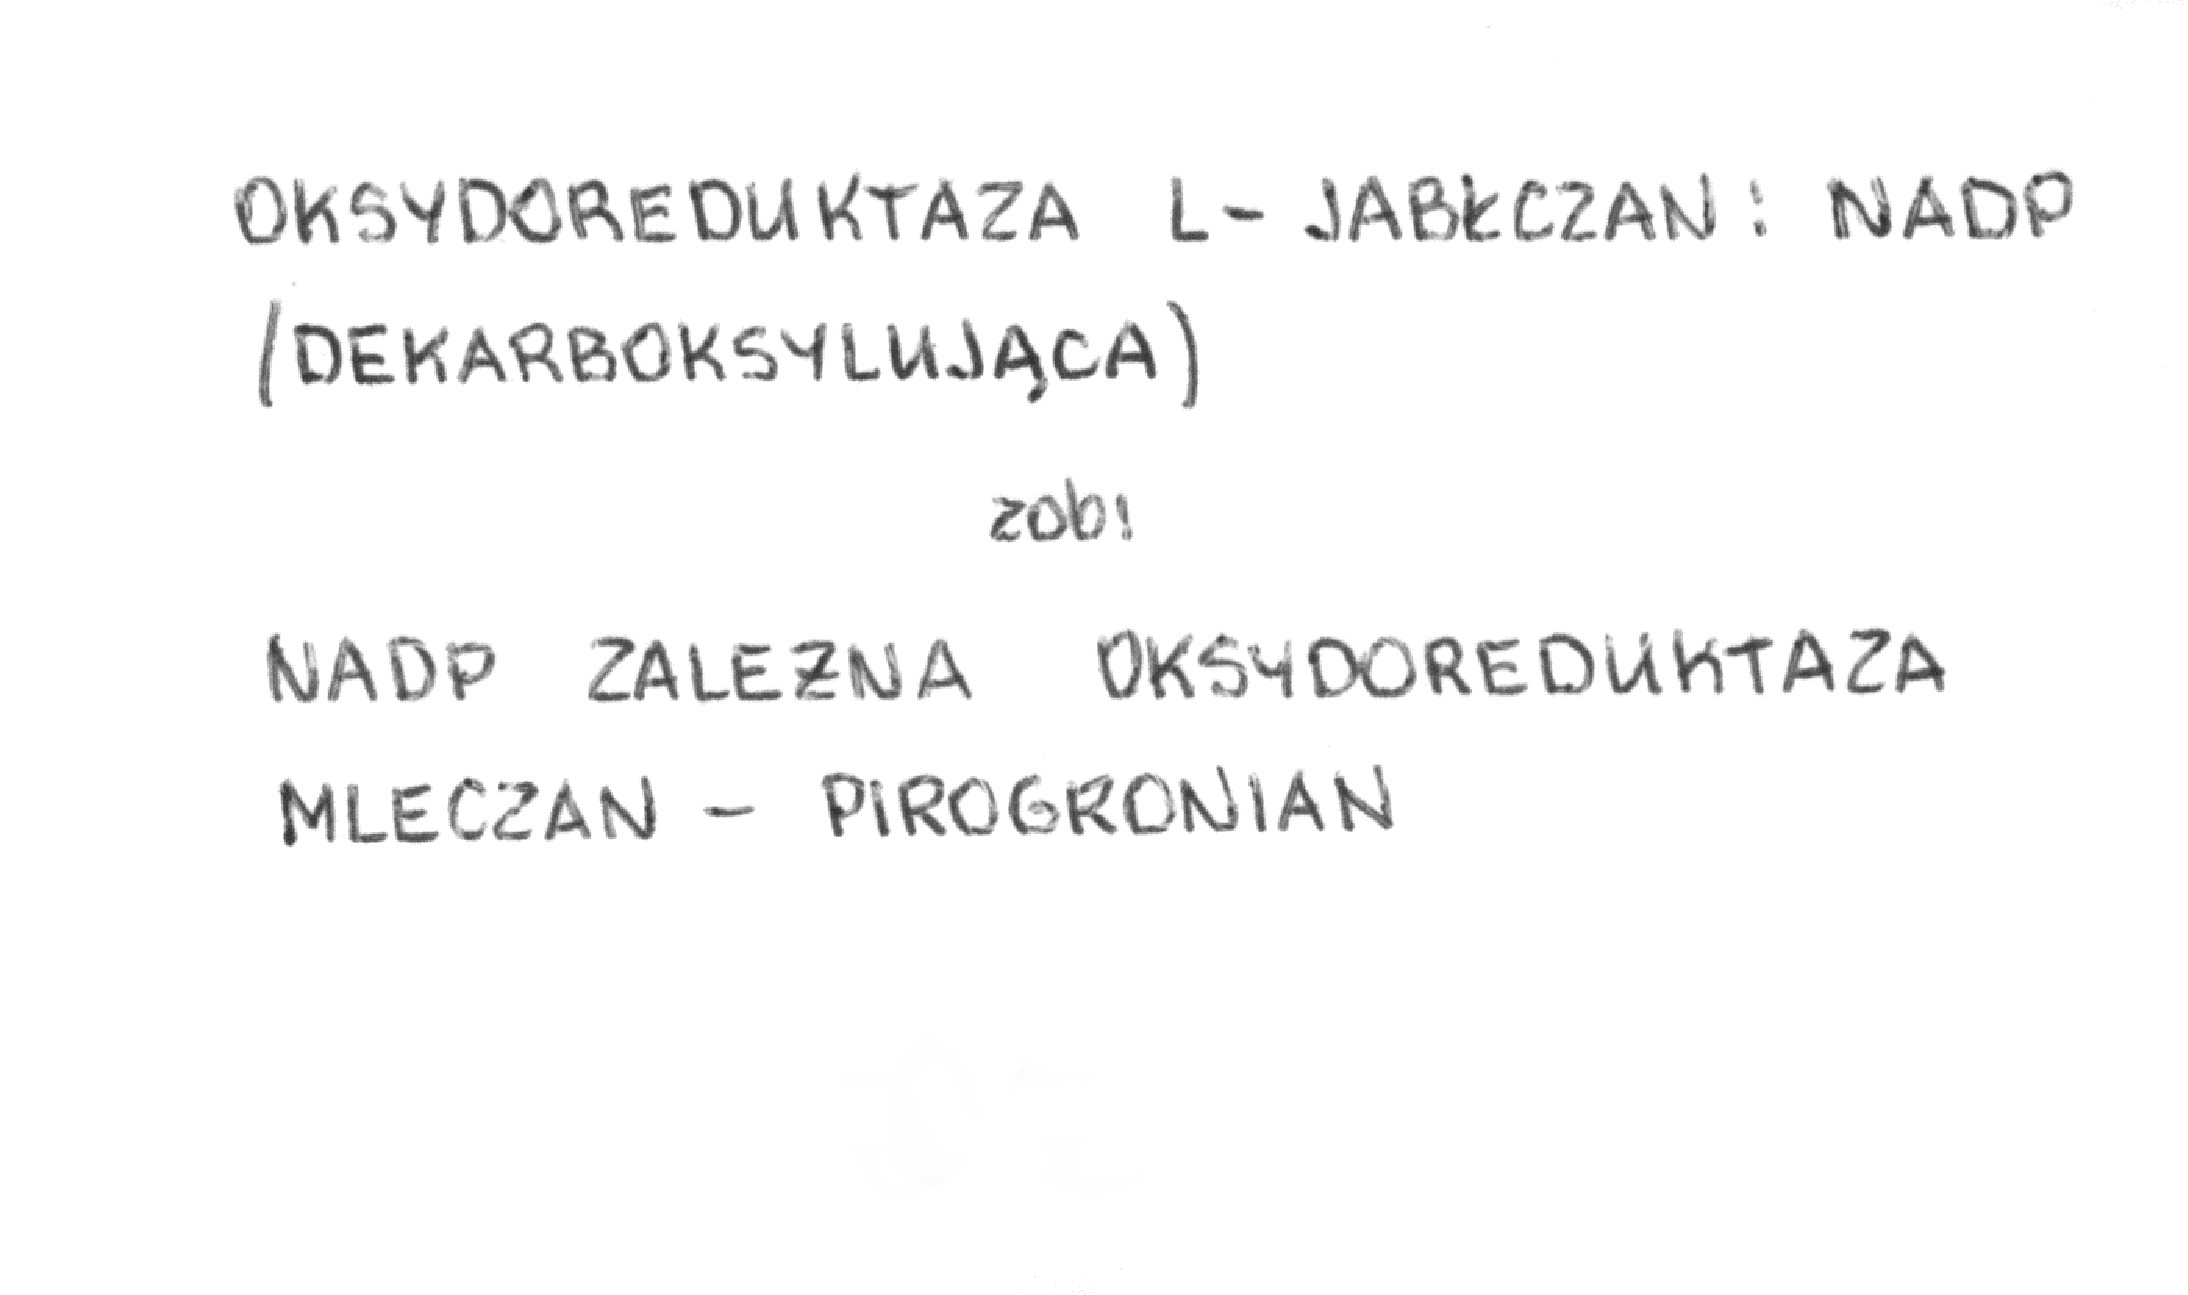 OKSYDOREDUKTAZA L- JABŁCZAN: NADP
(DEKARBOKSYLUJĄCA)
zob!
NADP ZALEŻNA OKSYDOREDUKTAZA
MLECZAN - PIROGRONIAN